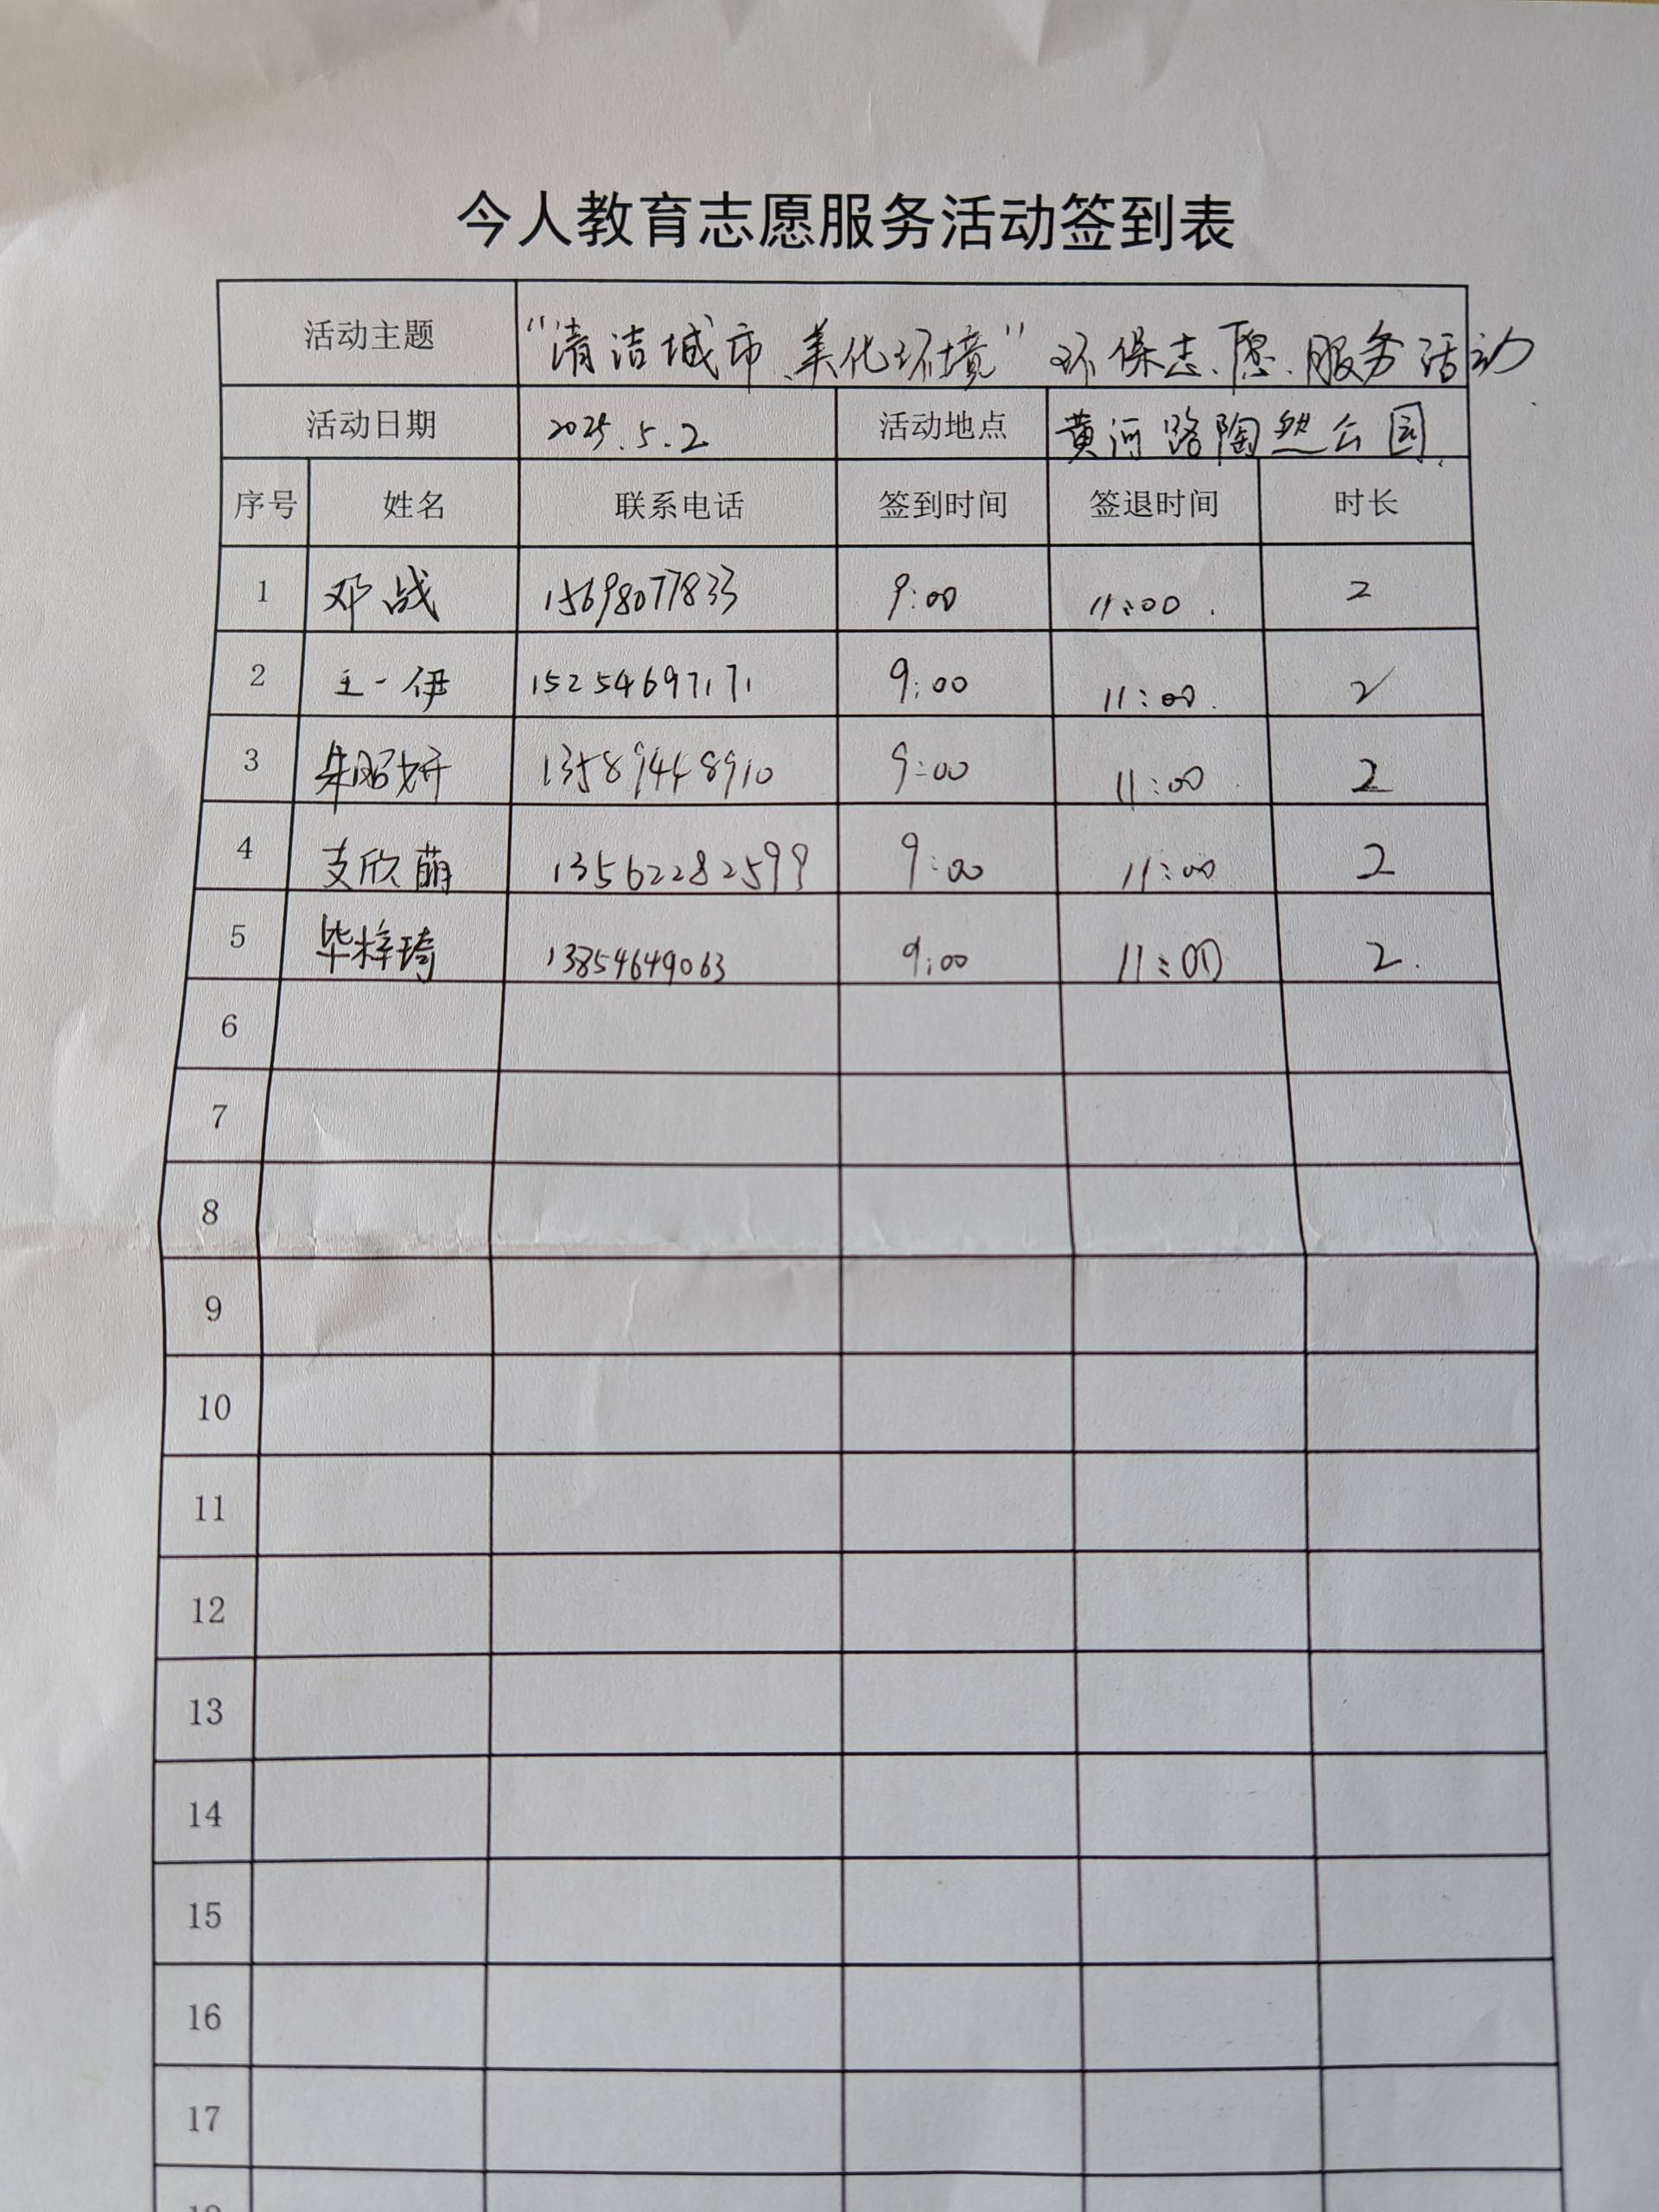 今人教育志愿服务活动签到表
活动主题 “清洁城市、美化环境”环保志愿服务活动
活动日期 2025.5.2 活动地点 黄河路陶然公园
序号 姓名 联系电话 签到时间 签退时间 时长
1 邓战 15698077833 9:00 11:00 2
2 王一伊 15254697171 9:00 11:00 2
3 朱昭妍 13589448910 9:00 11:00 2
4 支欣萌 13562282599 9:00 11:00 2
5 毕梓琦 13854649063 9:00 11:00 2
6
7
8
9
10
11
12
13
14
15
16
17